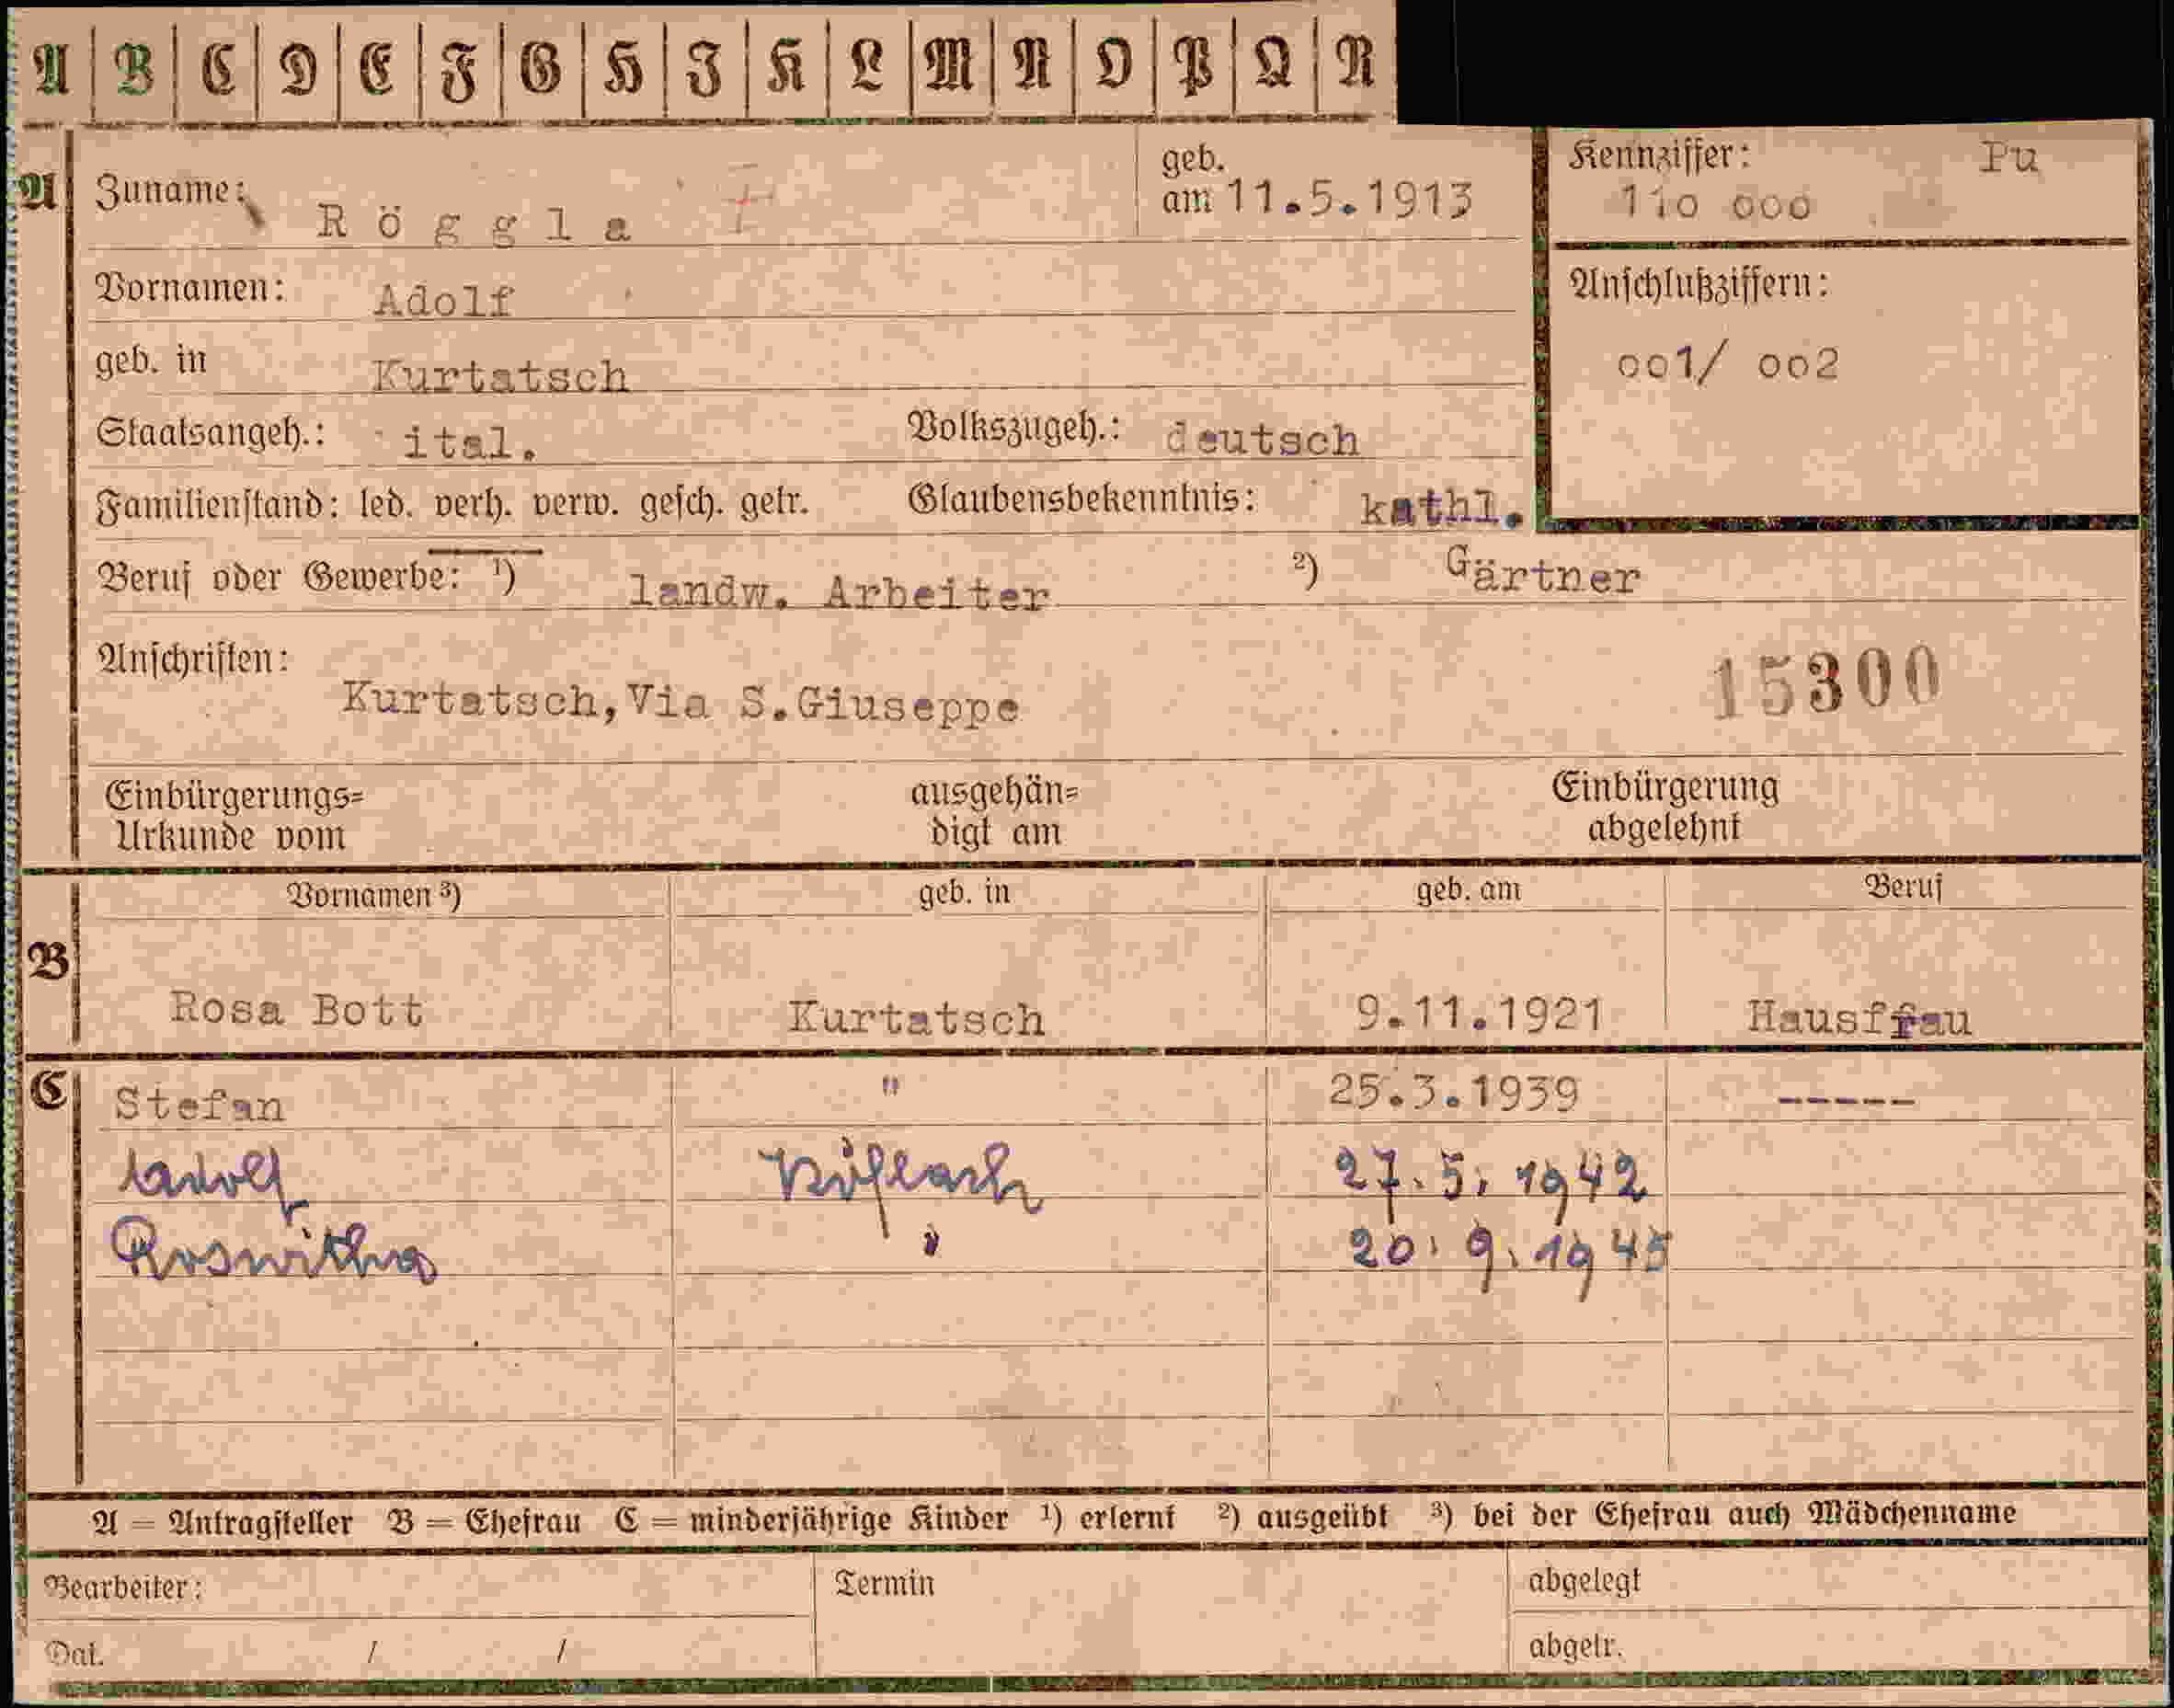 A B C D E F G H I K L M N O P Q R
A
Zuname: Röggla
geb. am 11.5.1913
Kennziffer: Pu
110 000
Vornamen: Adolf
Anschlußziffern:
001/ 002
geb. in Kurtatsch
Staatsangeh.: ital. Volkszugeh.: deutsch
Familienstand: led. verh. verw. gesch. getr. Glaubensbekenntnis: kathl.
Beruf oder Gewerbe: ¹) landw. Arbeiter ²) Gärtner
Anschriften:
Kurtatsch, Via S.Giuseppe
15300
Einbürgerungs=
Urkunde vom
ausgehän=
digt am
Einbürgerung
abgelehnt
Vornamen ³) geb. in geb. am Beruf
B
Rosa Bott Kurtatsch 9.11.1921 Hausffau
C
Stefan " 25.3.1939 -----
Adolf 27.5.1942
Roswitha " 20.9.1945
A = Antragsteller B = Ehefrau C = minderjährige Kinder ¹) erlernt ²) ausgeübt ³) bei der Ehefrau auch Mädchenname
Bearbeiter: Termin abgelegt
Dat. / / abgetr.